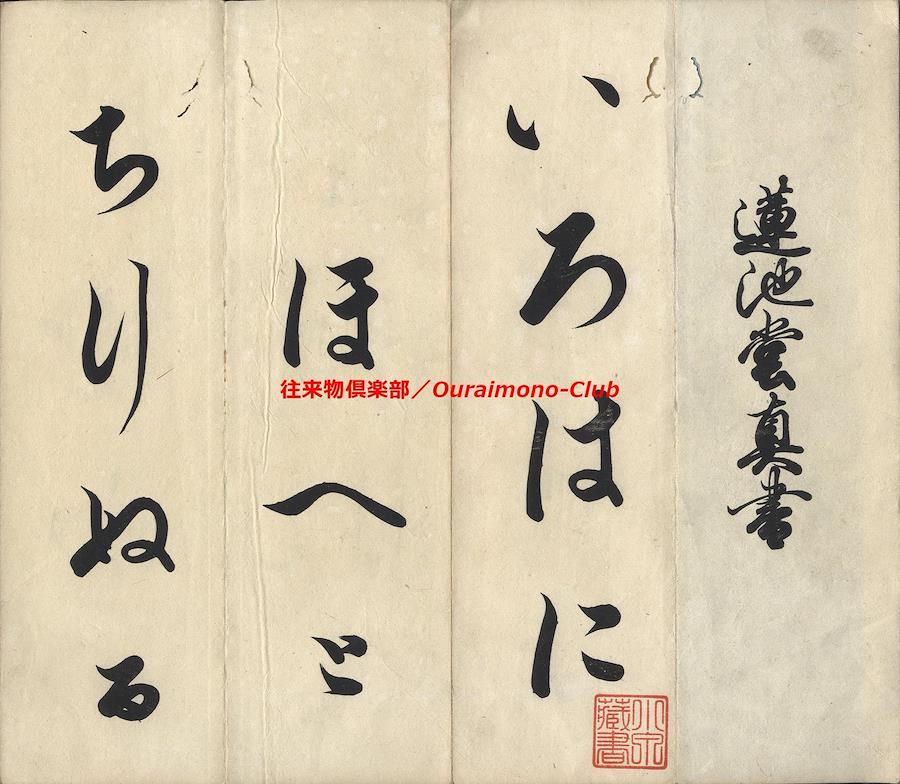 蓮池堂真書
いろはに
ほへと
ちりぬる
往来物倶楽部／Ouraimono-Club
小泉蔵書